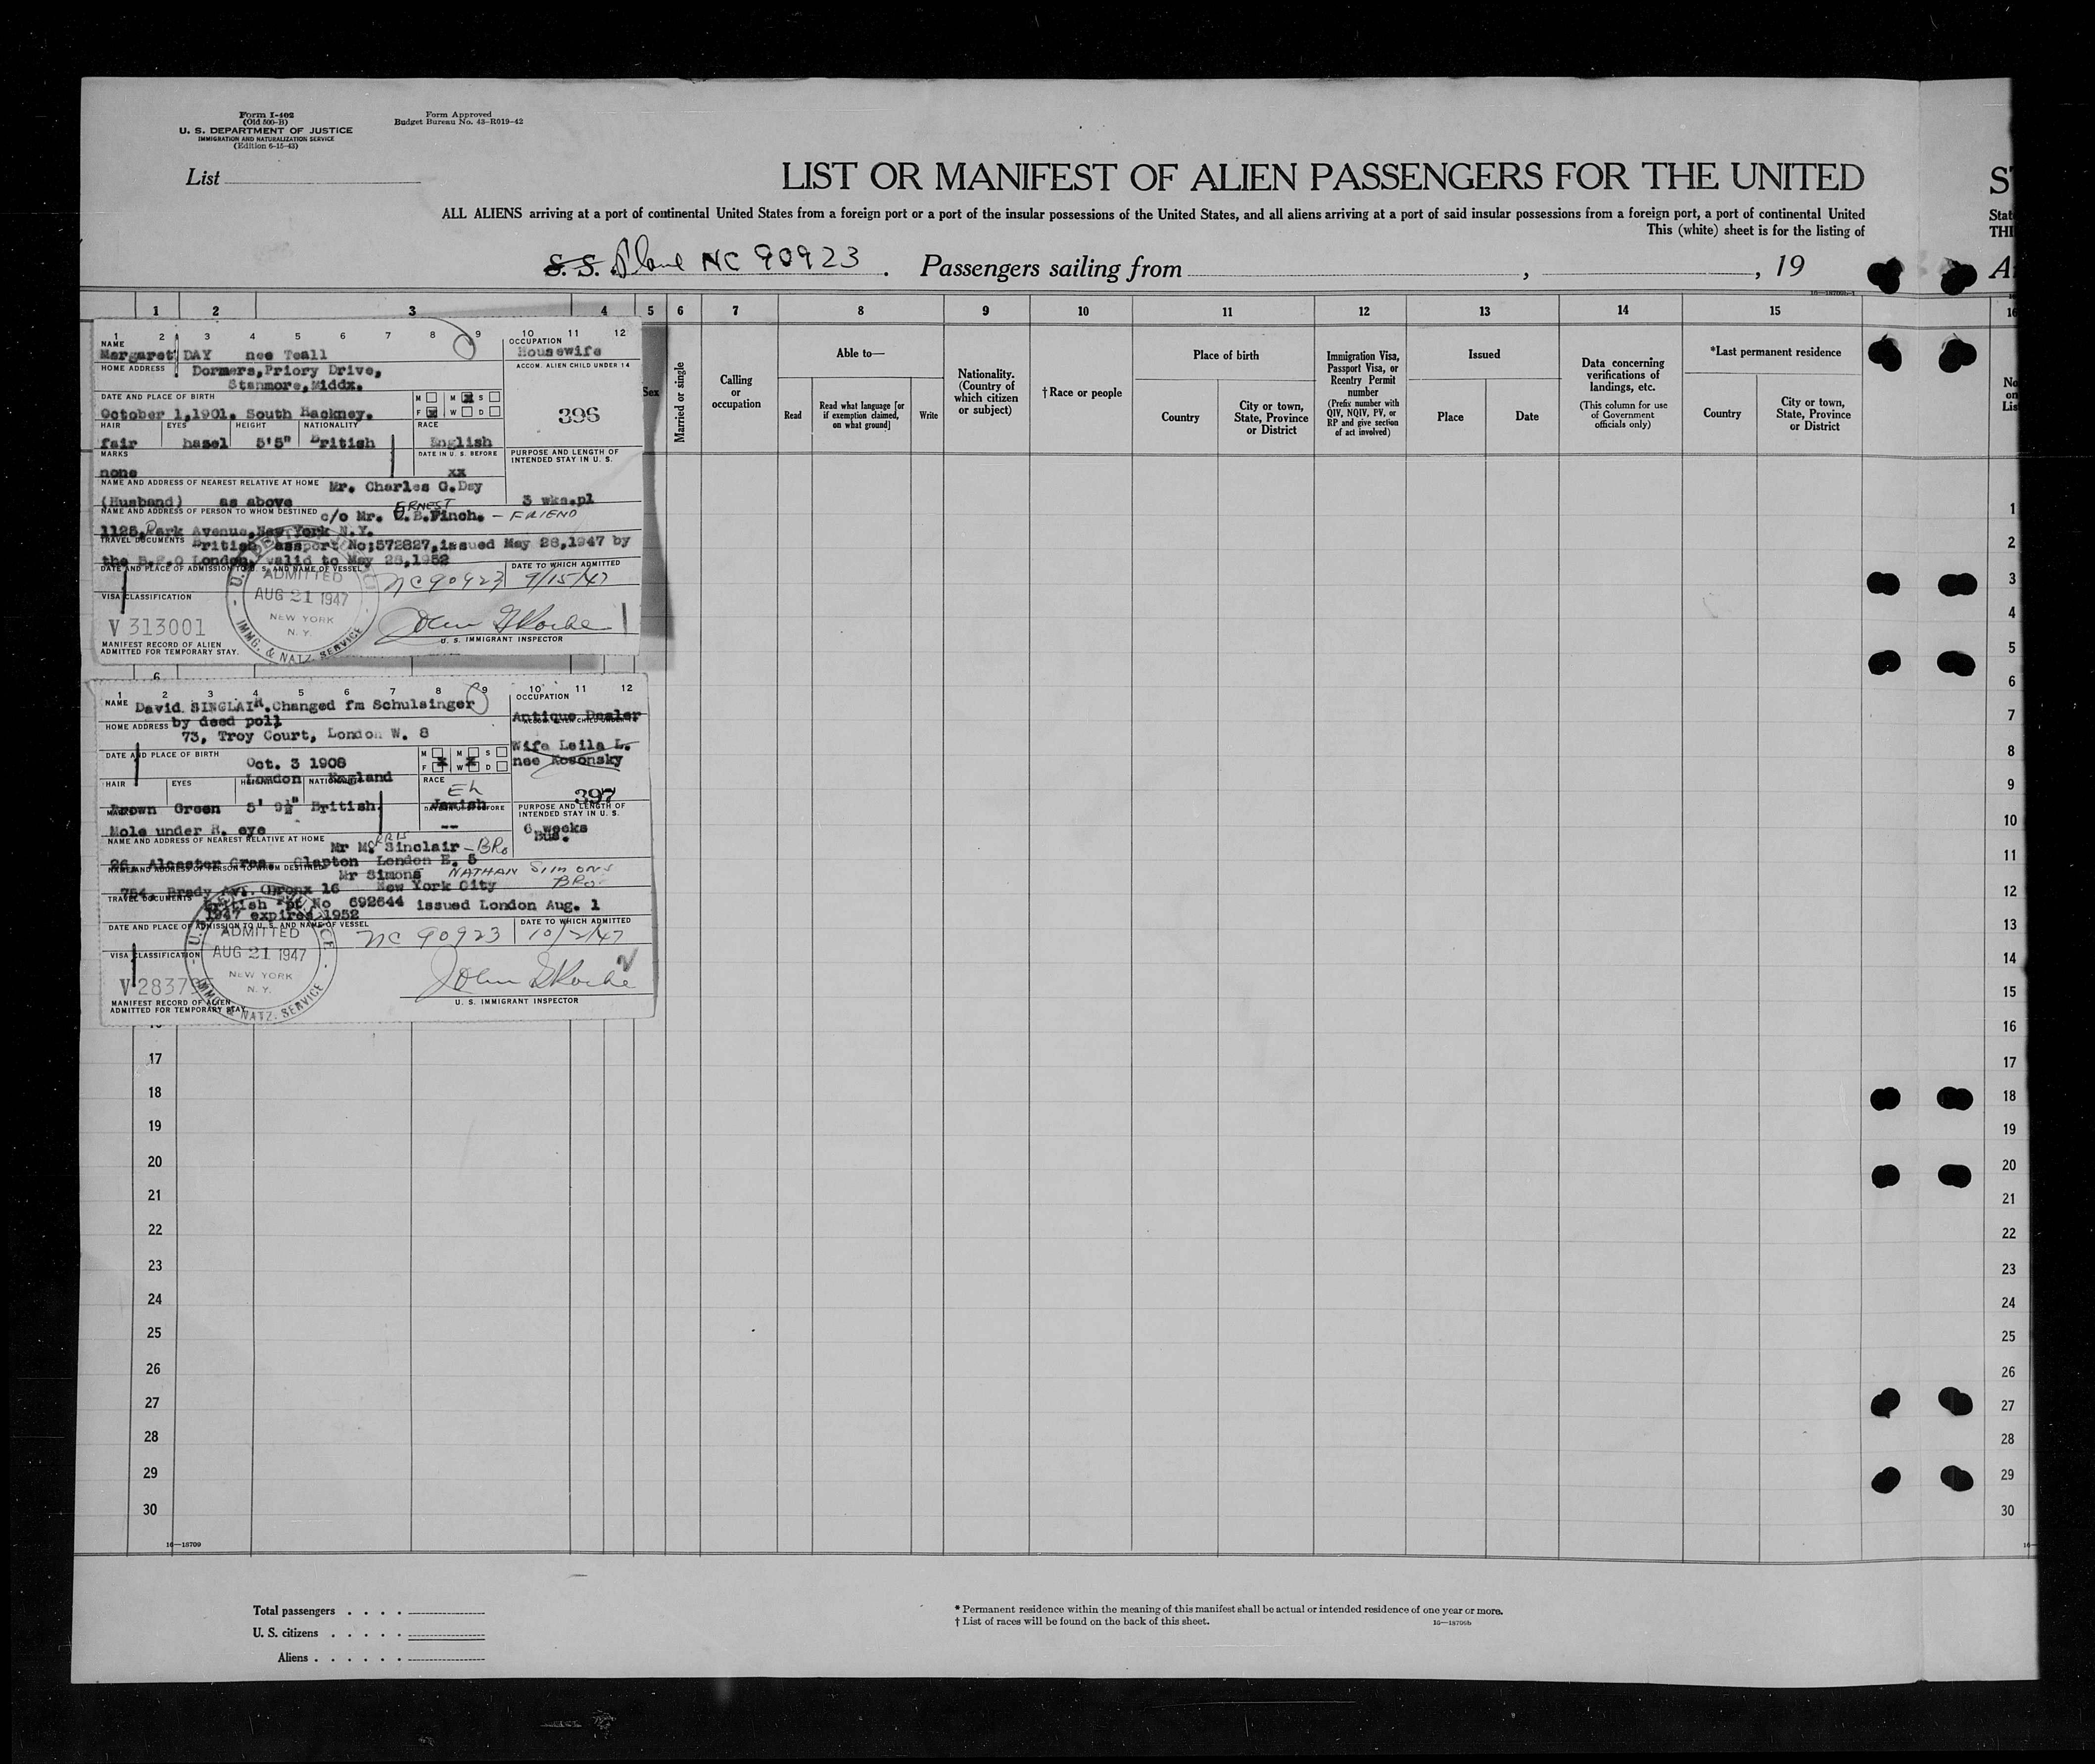 Form I-402
(Old 500-B)
U. S. DEPARTMENT OF JUSTICE
IMMIGRATION AND NATURALIZATION SERVICE
(Edition 6-15-43)
Form Approved
Budget Bureau No. 43-R019-42
List
LIST OR MANIFEST OF ALIEN PASSENGERS FOR THE UNITED
ALL ALIENS arriving at a port of continental United States from a foreign port or a port of the insular possessions of the United States, and all aliens arriving at a port of said insular possessions from a foreign port, a port of continental United
This (white) sheet is for the listing of
S. S. Plane NC 90923 . Passengers sailing from , , 19
S
Stat
THI
A
1 2 3 4 5 6 7 8 9 10 11 12 13 14 15 16
Sex
Married or single
Calling
or
occupation
Able to—
Read
Read what language [or
if exemption claimed,
on what ground]
Write
Nationality.
(Country of
which citizen
or subject)
†Race or people
Place of birth
Country
City or town,
State, Province
or District
Immigration Visa,
Passport Visa, or
Reentry Permit
number
(Prefix number with
QIV, NQIV, PV, or
RP and give section
of act involved)
Issued
Place
Date
Data concerning
verifications of
landings, etc.
(This column for use
of Government
officials only)
*Last permanent residence
Country
City or town,
State, Province
or District
No
on
List
1 2 3 4 5 6 7 8 9 10 11 12
NAME
Margaret DAY nee Teall
OCCUPATION
Housewife
HOME ADDRESS
Dormers,Priory Drive,
Stanmore,Middx.
ACCOM. ALIEN CHILD UNDER 14
DATE AND PLACE OF BIRTH
M M S
F W D
October 1,1901. South Hackney.
396
HAIR EYES HEIGHT NATIONALITY RACE
fair hasel 5'5" British English
MARKS
none
DATE IN U. S. BEFORE
xx
PURPOSE AND LENGTH OF
INTENDED STAY IN U. S.
3 wks.pl
NAME AND ADDRESS OF NEAREST RELATIVE AT HOME Mr. Charles G.Day
(Husband) as above
NAME AND ADDRESS OF PERSON TO WHOM DESTINED c/o Mr. ERNEST B.Finch. — FRIEND
1125,Park Avenue,New York N.Y.
TRAVEL DOCUMENTS British Passport No:572827,issued May 28,1947 by
the London, valid to May 28,1952
DATE AND PLACE OF ADMISSION TO U. S. AND NAME OF VESSEL
NC90923
DATE TO WHICH ADMITTED
9/15/47
ADMITTED
AUG 21 1947
NEW YORK
N. Y.
IMMG. & NATZ. SERVICE
VISA CLASSIFICATION
V 313001
U. S. IMMIGRANT INSPECTOR
MANIFEST RECORD OF ALIEN
ADMITTED FOR TEMPORARY STAY.
1 2 3 4 5 6 7 8 9 10 11 12
NAME David SINCLAIR.Changed fm Schulsinger
by deed poll
OCCUPATION
Antique Dealer
HOME ADDRESS
73, Troy Court, London W. 8
DATE AND PLACE OF BIRTH
Oct. 3 1908
London England
M M S
F W D
Wife Leila L.
nee Kosonsky
HAIR EYES HEIGHT NATIONALITY RACE
Eh
Brown Green 5' 9½" British Jewish
397
Mole under R. eye
--
PURPOSE AND LENGTH OF
INTENDED STAY IN U. S.
6 weeks
Bus.
NAME AND ADDRESS OF NEAREST RELATIVE AT HOME
Mr M. Sinclair — BRO
26, Alcester Cres. Clapton London E. 5
NAME AND ADDRESS OF PERSON TO WHOM DESTINED
Mr Simons NATHAN SIMONS
BRO
784, Brady Av. Bronx 16 New York City
TRAVEL DOCUMENTS
British Ppt No 692644 issued London Aug. 1
1947 expires 1952
DATE AND PLACE OF ADMISSION TO U. S. AND NAME OF VESSEL
NC 90923
DATE TO WHICH ADMITTED
10/2/47
ADMITTED
AUG 21 1947
NEW YORK
N. Y.
IMMG. & NATZ. SERVICE
VISA CLASSIFICATION
V 2837
2
U. S. IMMIGRANT INSPECTOR
MANIFEST RECORD OF ALIEN
ADMITTED FOR TEMPORARY STAY
1
2
3
4
5
6
7
8
9
10
11
12
13
14
15
16
17 17
18 18
19 19
20 20
21 21
22 22
23 23
24 24
25 25
26 26
27 27
28 28
29 29
30 30
16—18709
Total passengers
U. S. citizens
Aliens
* Permanent residence within the meaning of this manifest shall be actual or intended residence of one year or more.
† List of races will be found on the back of this sheet.
16—18709b